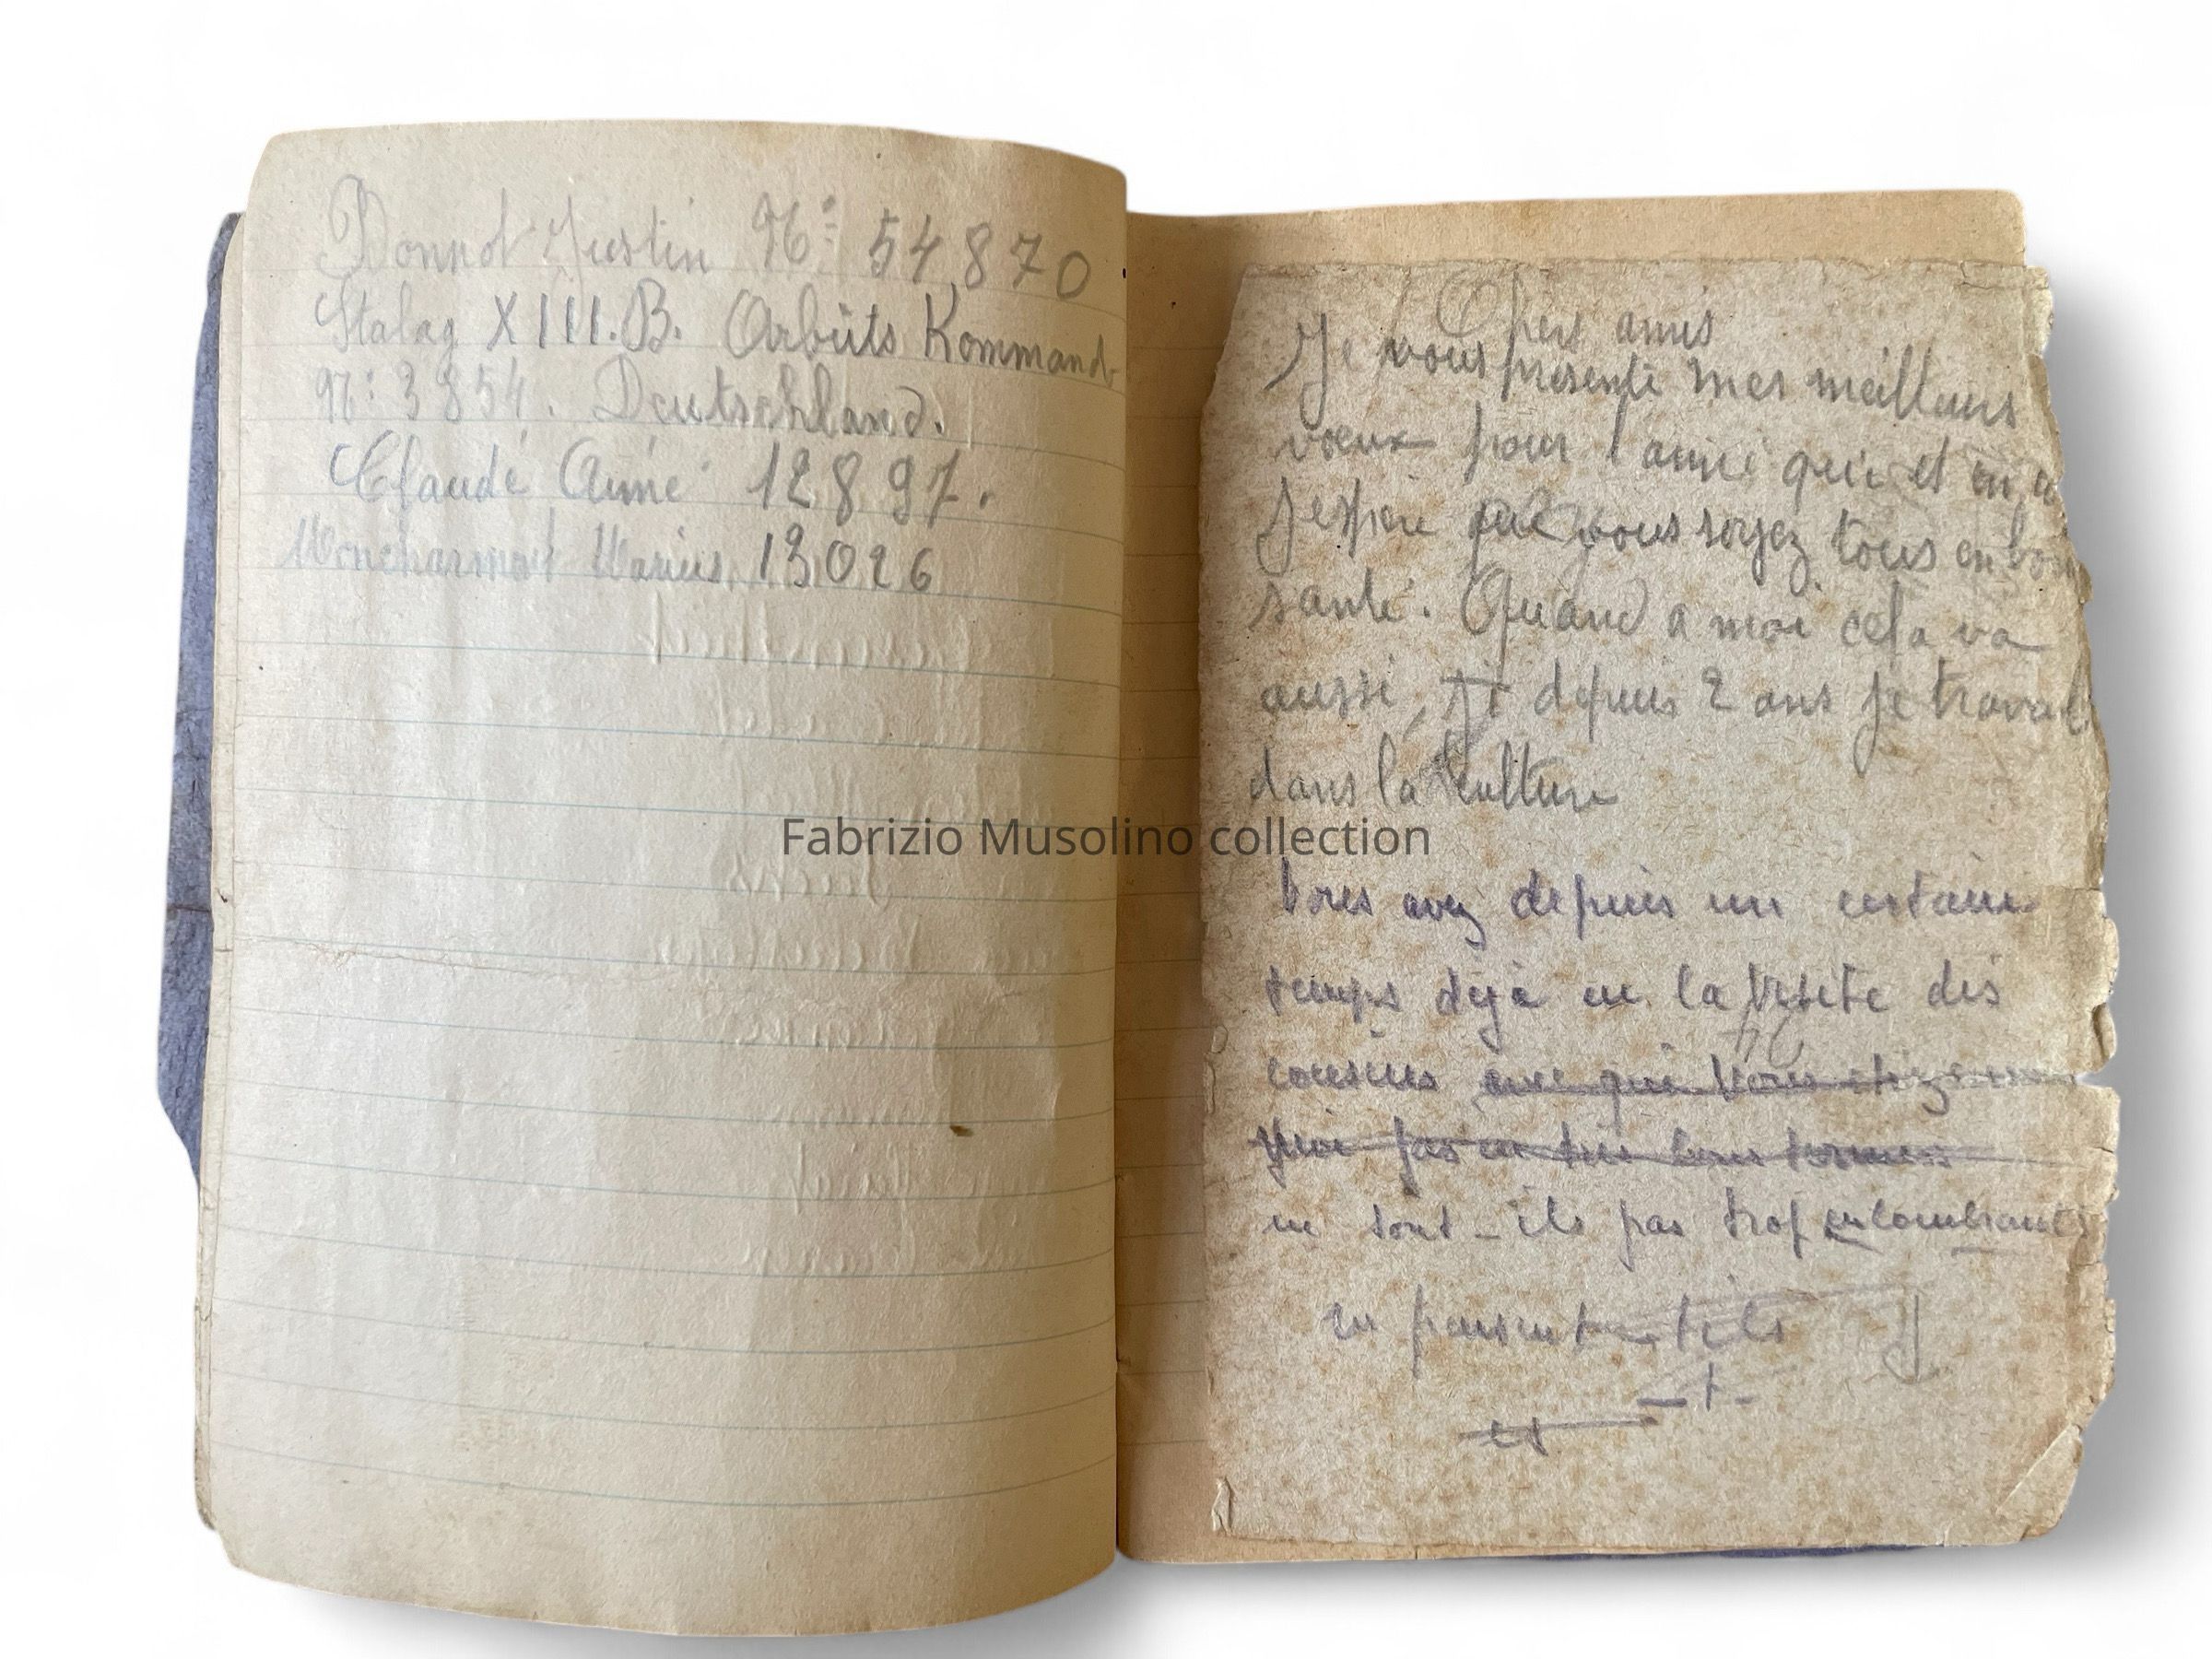 Donnot Justin N°: 54870
Stalag XIII.B. Arbeits Kommand
N°: 3854. Deutschland.
Claude Aimé 12897.
Moncharmont Marius, 13026
Chers amis
Je vous présente mes meilleurs
voeux pour l'année qui et en
J'espère que vous soyez tous en bon
santé. Quand a moi cela va
aussi, depuis 2 ans je travail
dans la culture
Fabrizio Musolino collection
Vous avez depuis un certain
temps déjà eu la visite des
cousins avec qui vous
pas en bons termes
ne sont-ils pas trop encombrants
en pensent-ils
-t-
et